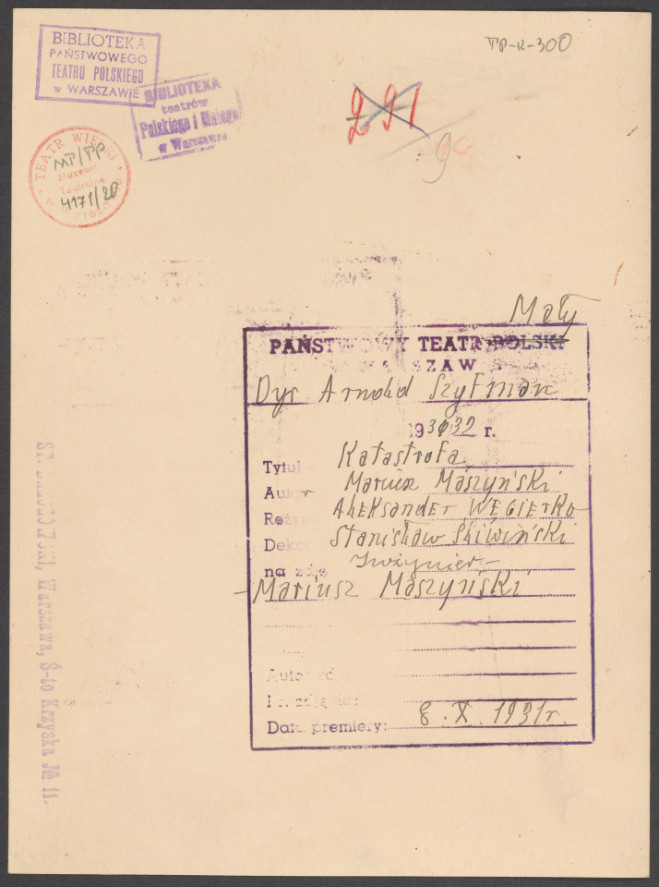 BIBLIOTEKA
PAŃSTWOWEGO
TEATRU POLSKIEGO
w WARSZAWIE
BIBLIOTEKA
teatrów
Polskiego i Małego
w Warszawie
TEATR WIELKI
MP/TP
Muzeum
Teatralne
4171/20
TP-K-300
291
9
Mały
PAŃSTWOWY TEATR POLSKI
WARSZAW
Dyr Arnold Szyfman
193032 r.
Tytuł Katastrofa
Autor Mariusz Maszyński
Reżys ALEKSANDER WĘGIERKO
Deko Stanisław Śliwiński
na zdję Inżynier -
- Mariusz Maszyński
Autor zd
Data premiery: 8. X. 1931r.
Warszawa, Ś-to Krzyska № 11.